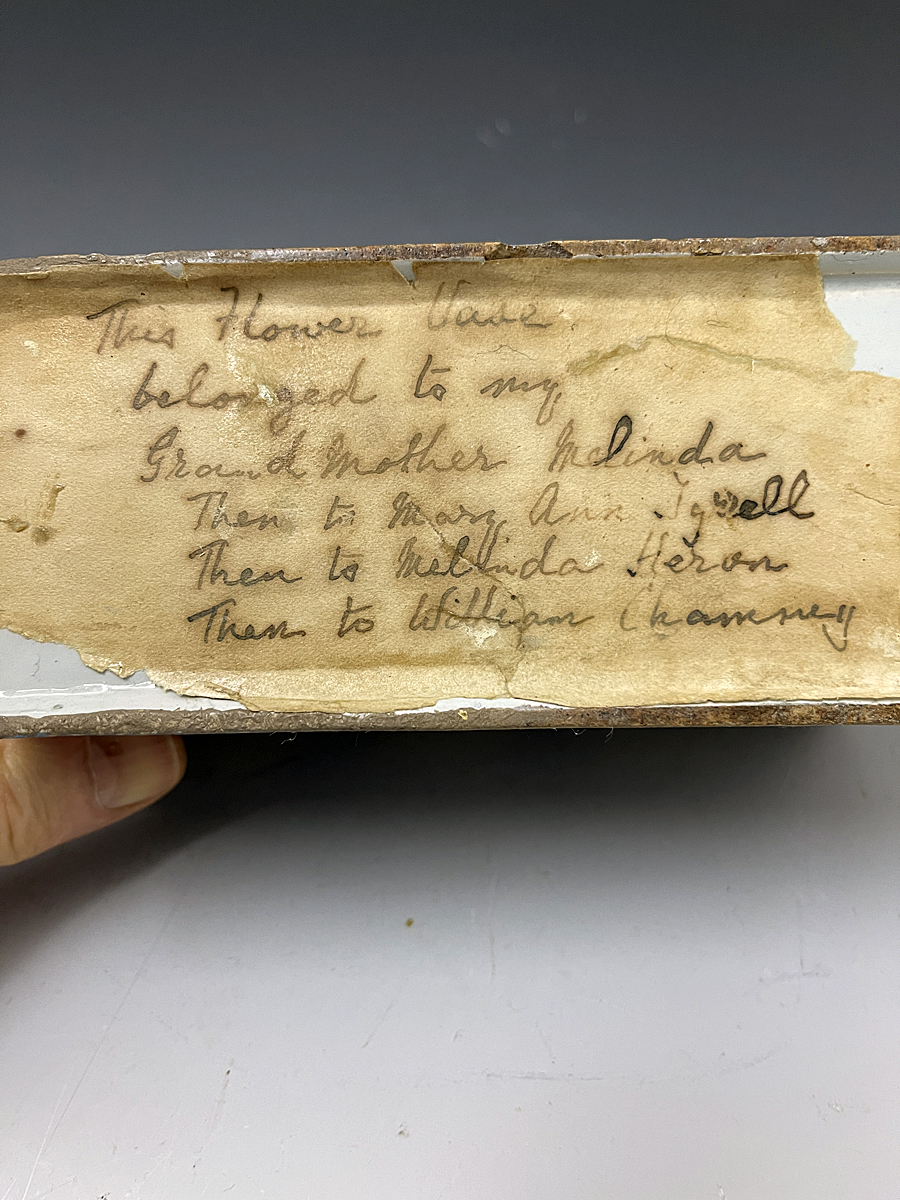 This Flower Vase
belonged to my
Grand Mother Melinda
Then to Mary Ann Tyrell
Then to Melinda Heron
Then to William Chamney